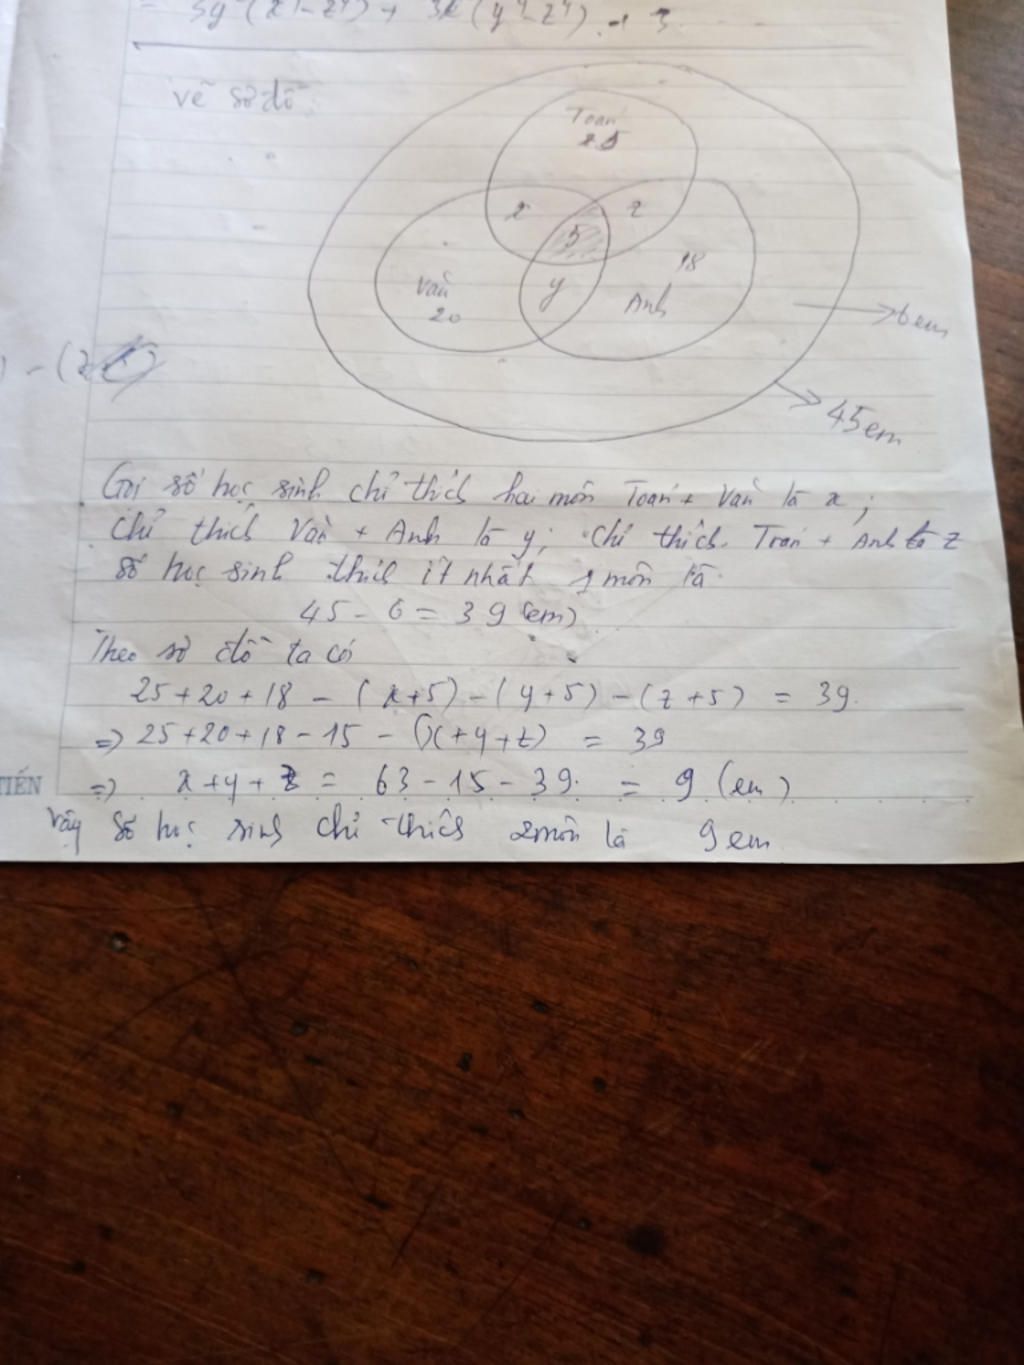 = 3y (x⁴-z⁴) + 3x (y⁴-z⁴) + 3
vẽ sơ đồ:
Toán
25
x
z
5
18
Văn
20
y
Anh
6 em
) - (z
45 em
Gọi số học sinh chỉ thích hai môn Toán + Văn là x ;
chỉ thích Văn + Anh là y; chỉ thích Toán + Anh là z
Số học sinh thích ít nhất 1 môn là
45 - 6 = 39 (em)
Theo sơ đồ ta có
25 + 20 + 18 - (x+5) - (y+5) - (z+5) = 39.
=> 25+20+18-15 - (x+y+z) = 39
TIẾN
=> x+y+z = 63-15-39 = 9 (em)
Vậy số học sinh chỉ thích 2 môn là 9 em